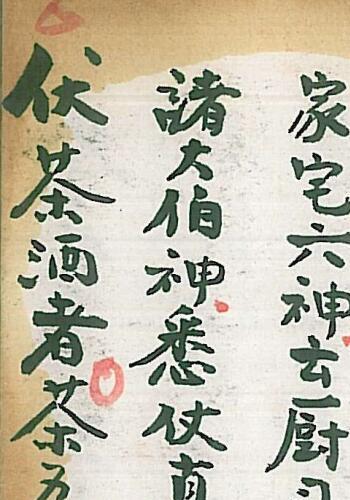 家宅六神玄厨
諸大伯神悉仗真
伏茶酒者茶